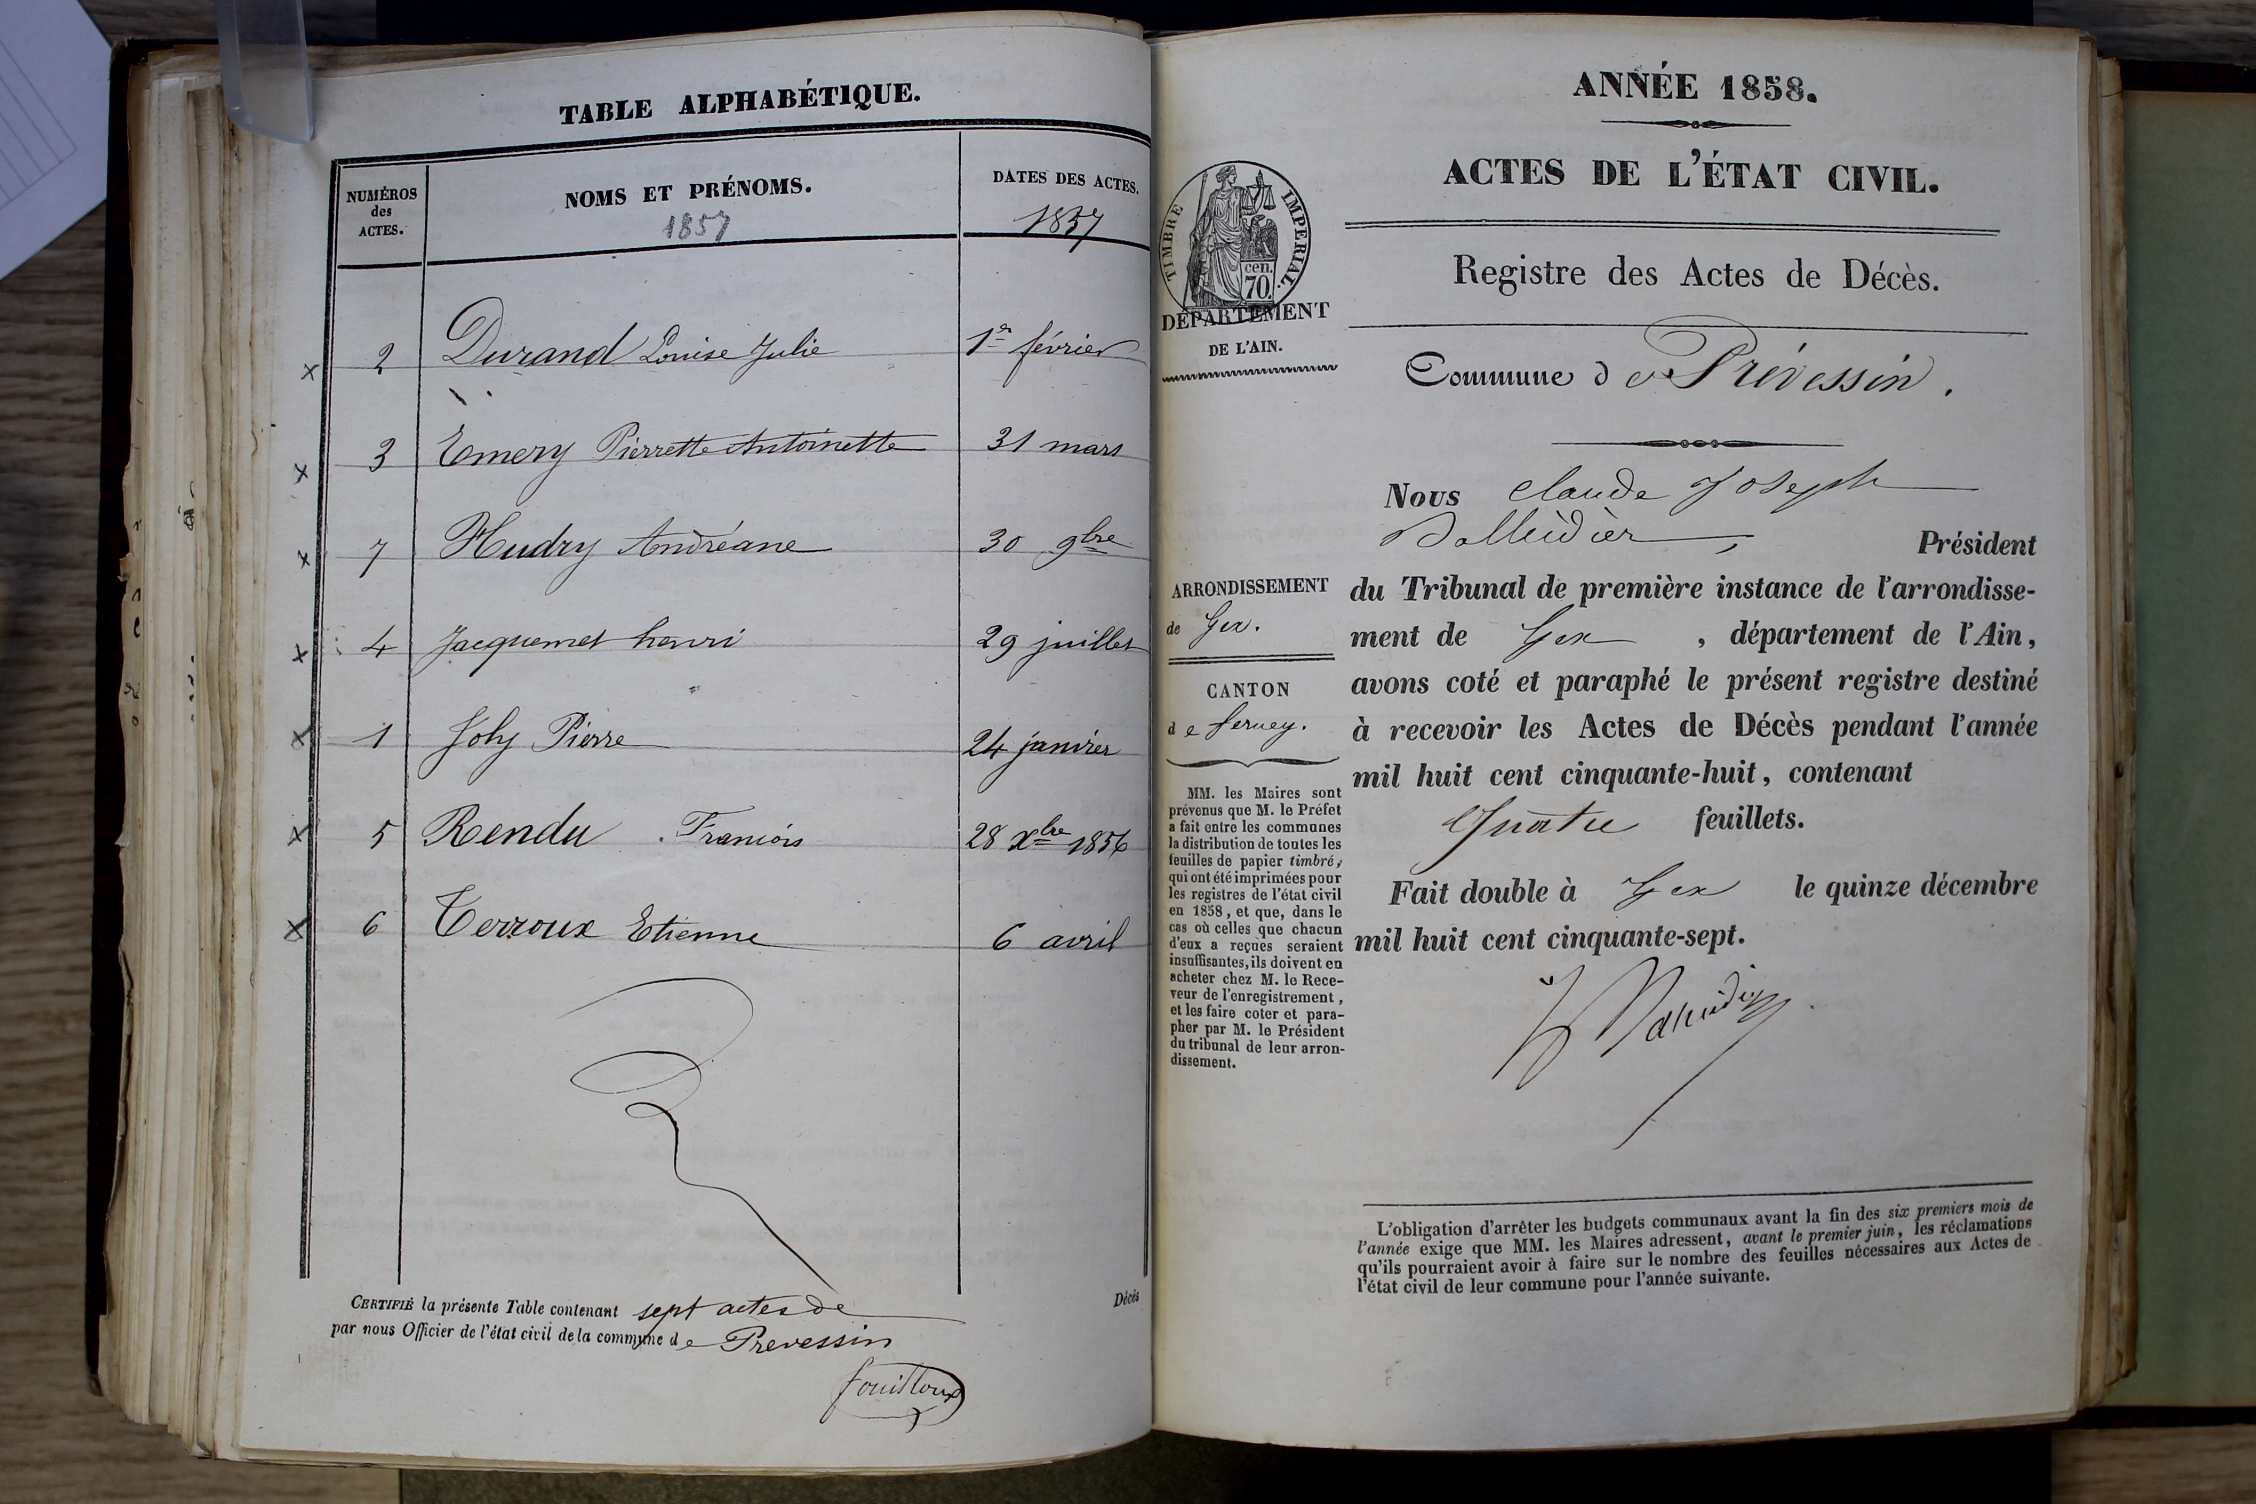 TABLE ALPHABÉTIQUE.
NUMÉROS
des
ACTES.
NOMS ET PRÉNOMS.
1857
DATES DES ACTES.
1857
x 2 Durand Louise Julie 1er février
x 3 Emery Pierrette Antoinette 31 mars
x 7 Hudry Andréane 30 9bre
x 4 Jacquemet henri 29 juillet
x 1 Joly Pierre 24 janvier
x 5 Rendu François 28 Xbre 1856
x 6 Terroux Etienne 6 avril
CERTIFIÉ la présente Table contenant sept actes de
par nous Officier de l'état civil de la commune de Prevessin
Décès
fouilloux
ANNÉE 1858.
ACTES DE L'ÉTAT CIVIL.
TIMBRE IMPERIAL.
cen.
70.
DÉPARTEMENT
DE L'AIN.
Registre des Actes de Décès.
Commune de Prévessin.
ARRONDISSEMENT
de Gex.
CANTON
de ferney.
MM. les Maires sont
prévenus que M. le Préfet
a fait entre les communes
la distribution de toutes les
feuilles de papier timbré,
qui ont été imprimées pour
les registres de l'état civil
en 1858, et que, dans le
cas où celles que chacun
d'eux a reçues seraient
insuffisantes, ils doivent en
acheter chez M. le Rece-
veur de l'enregistrement,
et les faire coter et para-
pher par M. le Président
du tribunal de leur arron-
dissement.
Nous Claude Joseph
Président
du Tribunal de première instance de l'arrondisse-
ment de Gex, département de l'Ain,
avons coté et paraphé le présent registre destiné
à recevoir les Actes de Décès pendant l'année
mil huit cent cinquante-huit, contenant
Quatre feuillets.
Fait double à Gex le quinze décembre
mil huit cent cinquante-sept.
L'obligation d'arrêter les budgets communaux avant la fin des six premiers mois de
l'année exige que MM. les Maires adressent, avant le premier juin, les réclamations
qu'ils pourraient avoir à faire sur le nombre des feuilles nécessaires aux Actes de
l'état civil de leur commune pour l'année suivante.